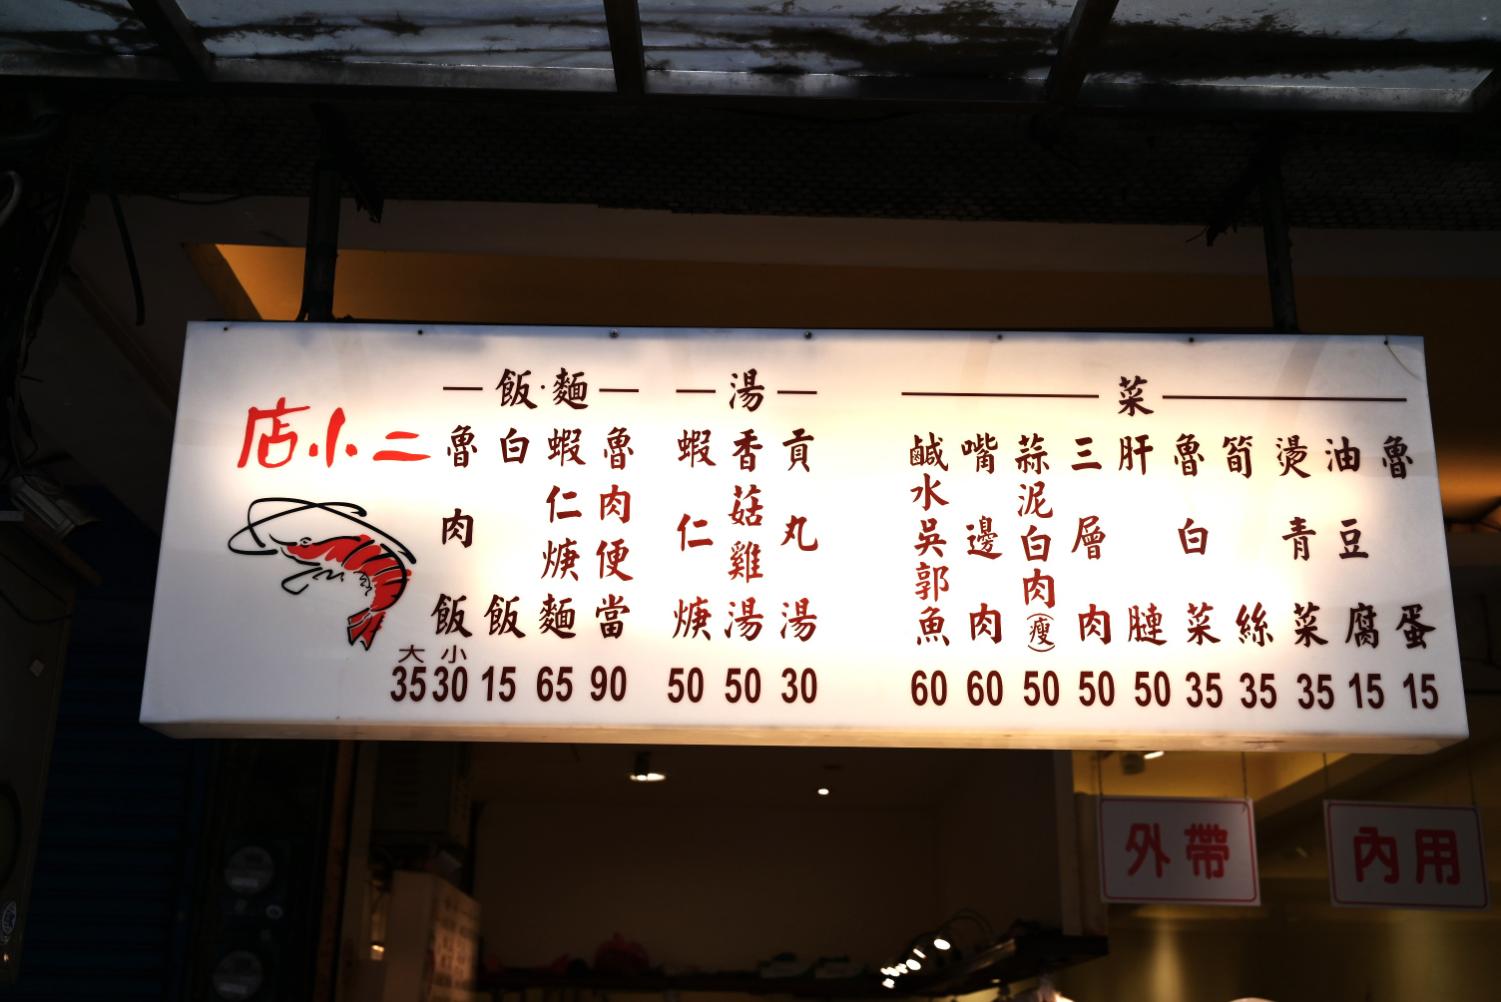 店小二
飯·麵
魯肉飯 大35 小30
白飯 15
蝦仁焿麵 65
魯肉便當 90
湯
蝦仁焿 50
香菇雞湯 50
貢丸湯 30
菜
鹹水吳郭魚 60
嘴邊肉 60
蒜泥白肉(瘦) 50
三層肉 50
肝腱 50
魯白菜 35
筍絲 35
燙青菜 35
油豆腐 15
魯蛋 15
外帶
內用